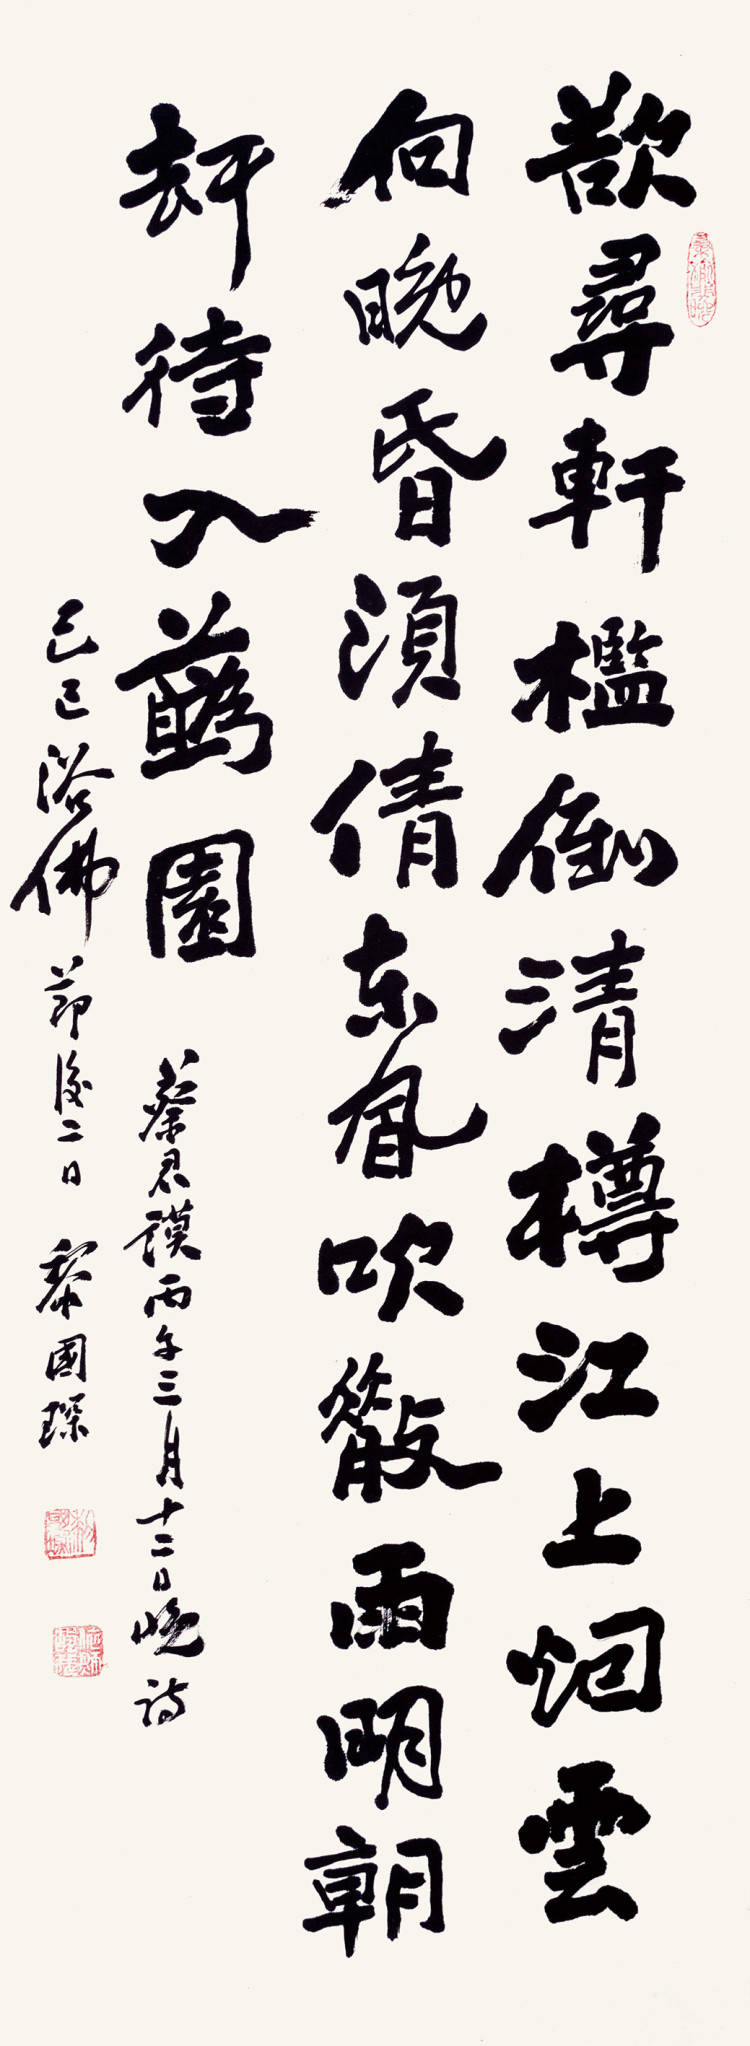 欲尋軒檻倒清樽江上烟雲
向晚昏須倩东風吹散雨明朝
却待入蘤園
蔡君謨丙午三月十二日晚诗
己巳浴佛節後二日 黎國琛